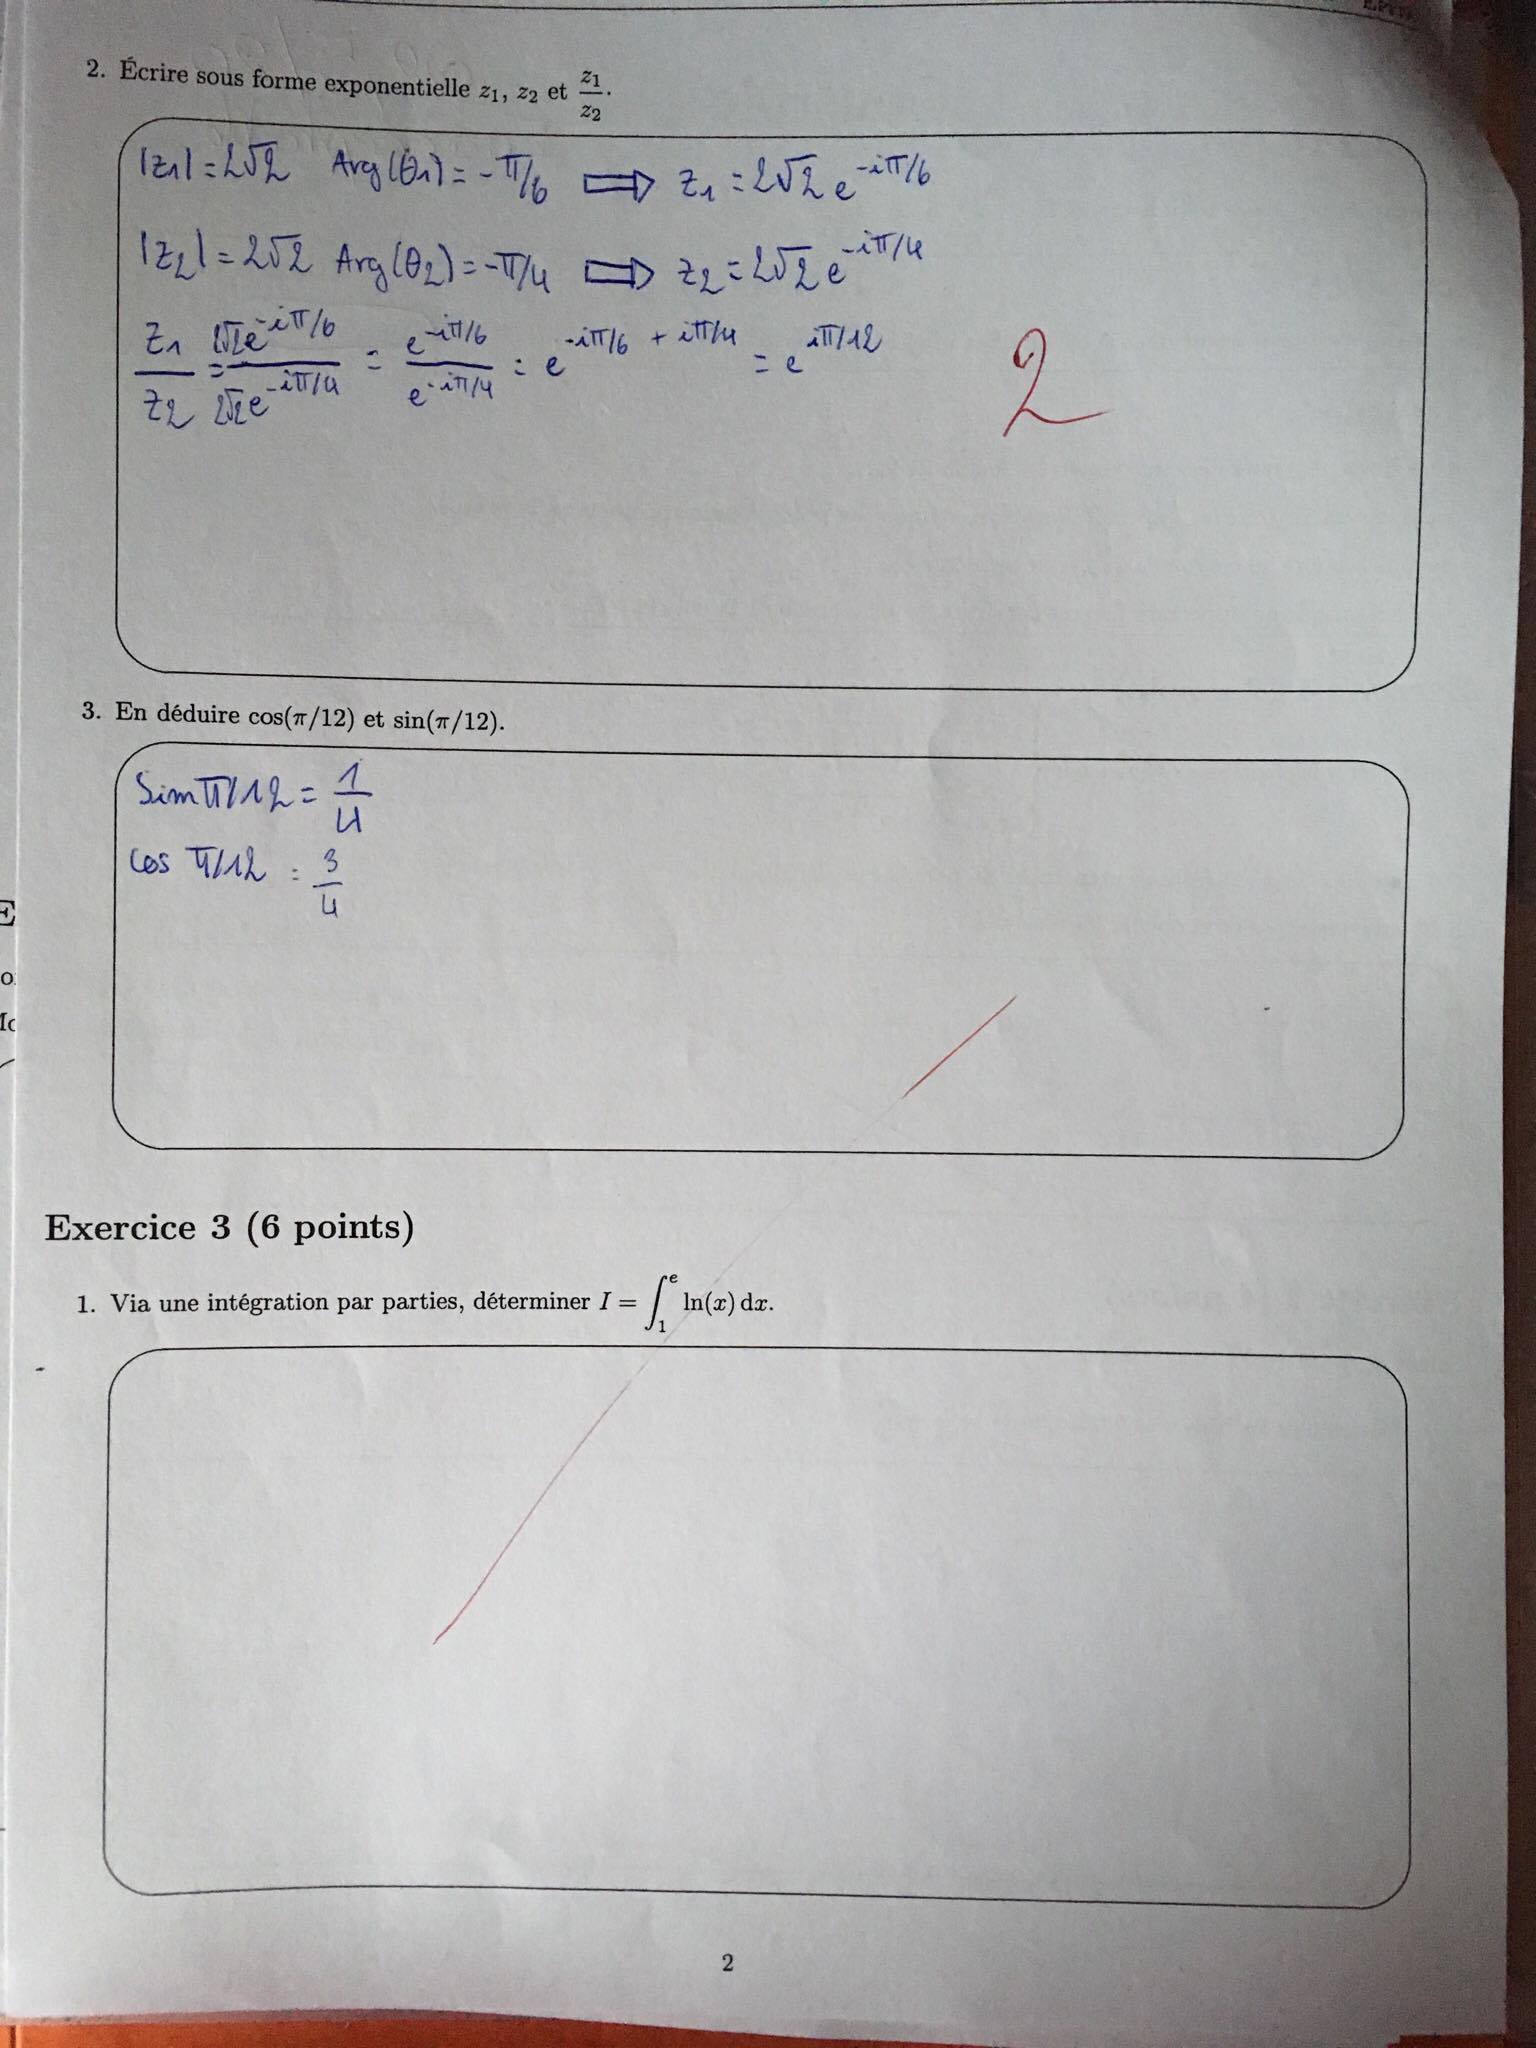 2. Écrire sous forme exponentielle z₁, z₂ et z₁/z₂.
|z₁| = 2√2 Arg(θ₁) = -π/6 ⟹ z₁ = 2√2 e^(-iπ/6)
|z₂| = 2√2 Arg(θ₂) = -π/4 ⟹ z₂ = 2√2 e^(-iπ/4)
z₁/z₂ = 2√2e^(-iπ/6) / 2√2e^(-iπ/4) = e^(-iπ/6) / e^(-iπ/4) = e^(-iπ/6 + iπ/4) = e^(iπ/12)
2
3. En déduire cos(π/12) et sin(π/12).
Sin π/12 = 1/4
cos π/12 = 3/4
Exercice 3 (6 points)
1. Via une intégration par parties, déterminer I = ∫₁ᵉ ln(x) dx.
2